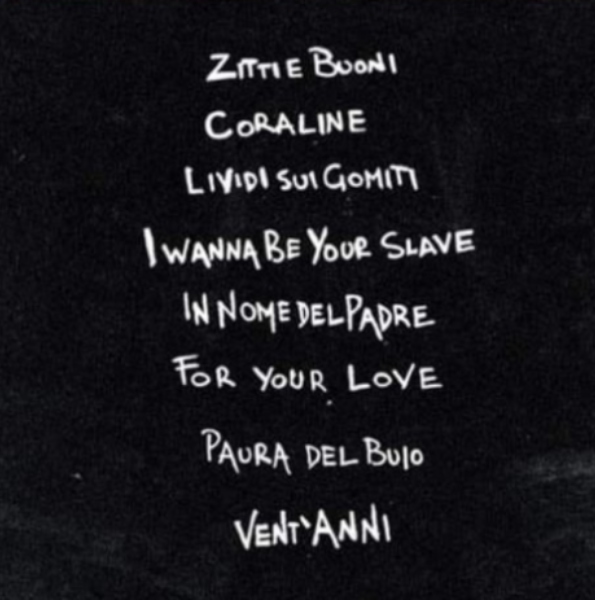 ZITTI E BUONI
CORALINE
LIVIDI SUI GOMITI
I WANNA BE YOUR SLAVE
IN NOME DEL PADRE
FOR YOUR LOVE
PAURA DEL BUIO
VENT'ANNI